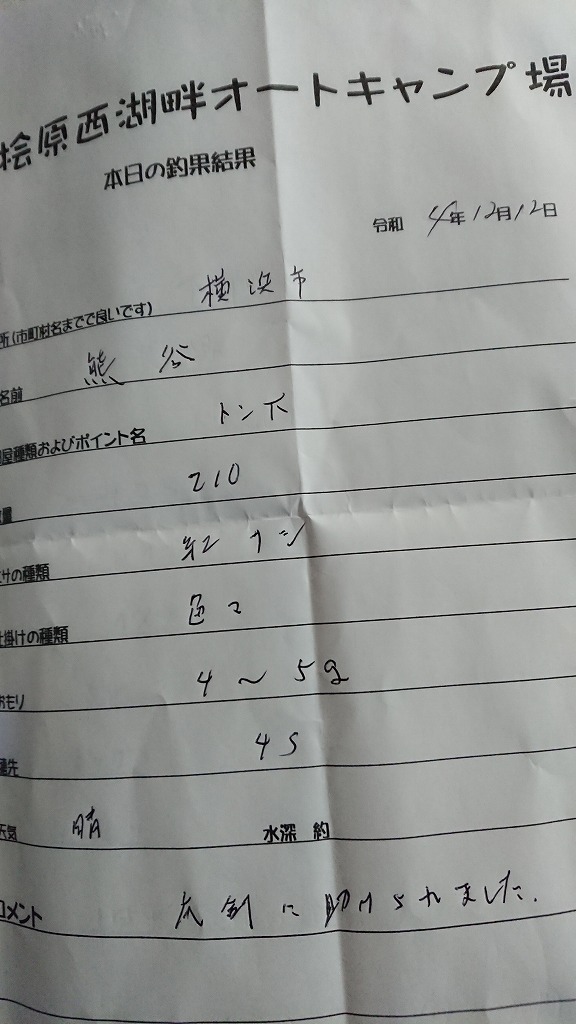 桧原西湖畔オートキャンプ場
本日の釣果結果
令和 4年12月12日
所(市町村名までで良いです) 横浜市
名前 熊谷
屋種類およびポイント名 トン下
量 210
けの種類 紅サシ
仕掛けの種類 色々
おもり 4〜5g
穂先 45
天気 晴 水深 約
コメント 底釣に助けられました.